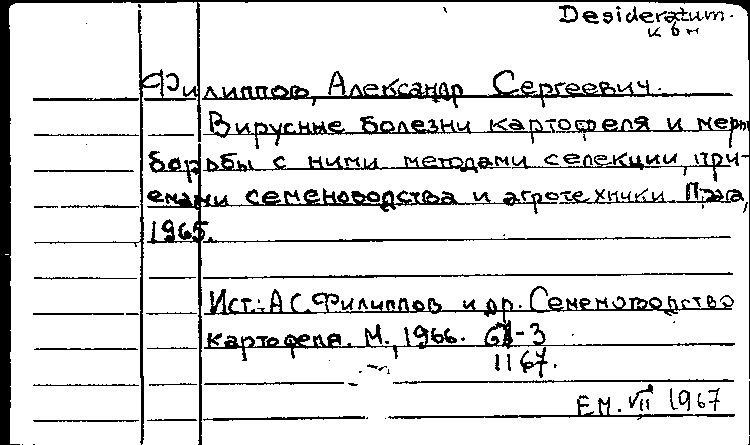 Desideratum.
к б н
Филиппов, Александр Сергеевич.
Вирусные болезни картофеля и меры
борьбы с ними методами селекции, при-
емами семеноводства и агротехники. Прага,
1965.
Ист.: А.С. Филиппов и др. Семеноводство
картофеля. М., 1966. 67-3
1167.
Ем. VII 1967